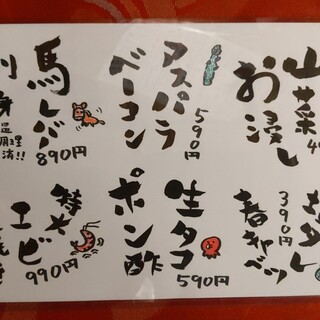 山菜
お浸し
アスパラ
ベーコン
590円
馬レバ
890円
刺身
低温調理済!!
春キャベツ
390円
生タコ
ポン酢
590円
特大
エビ
990円